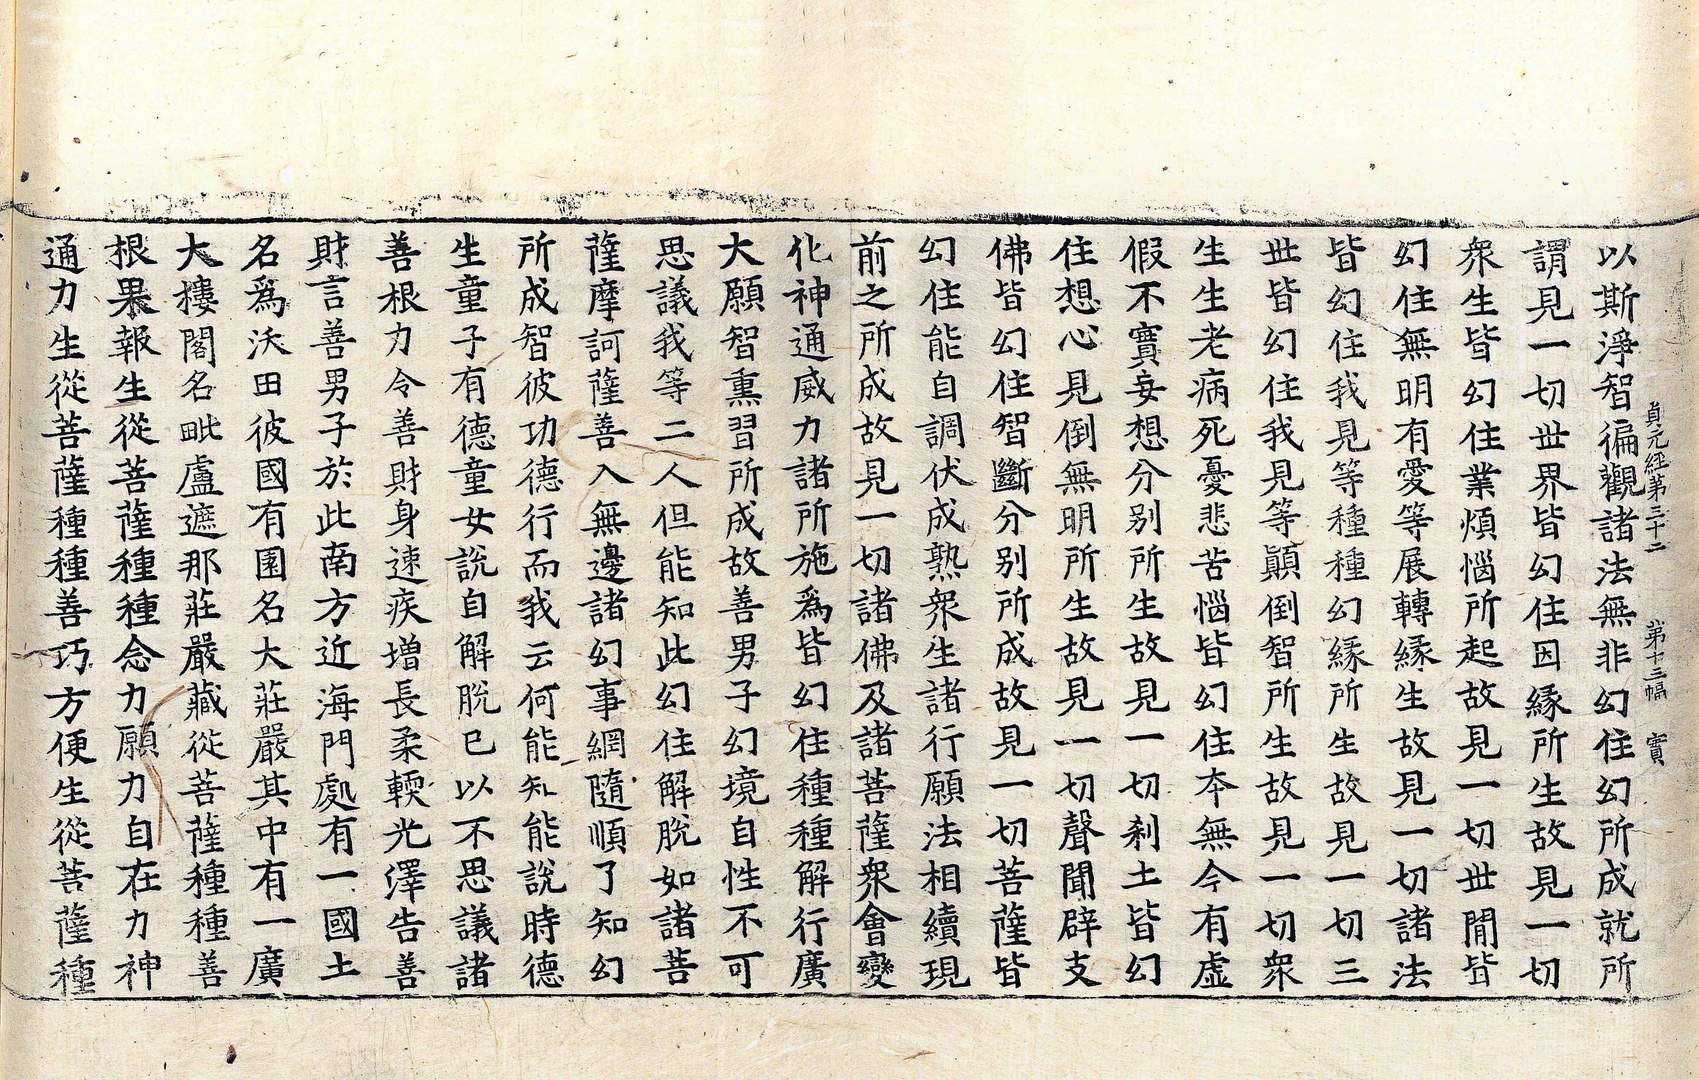 貞元經第三十二　第十三幅　實
以斯淨智徧觀諸法無非幻住幻所成就所
謂見一切世界皆幻住因緣所生故見一切
衆生皆幻住業煩惱所起故見一切世閒皆
幻住無明有愛等展轉緣生故見一切諸法
皆幻住我見等種種幻緣所生故見一切三
世皆幻住我見等顚倒智所生故見一切衆
生生老病死憂悲苦惱皆幻住本無今有虛
假不實妄想分别所生故見一切刹土皆幻
住想心見倒無明所生故見一切聲聞辟支
佛皆幻住智斷分别所成故見一切菩薩皆
幻住能自調伏成熟衆生諸行願法相續現
前之所成故見一切諸佛及諸菩薩衆會變
化神通威力諸所施爲皆幻住種種解行廣
大願智熏習所成故善男子幻境自性不可
思議我等二人但能知此幻住解脫如諸菩
薩摩訶薩善入無邊諸幻事網隨順了知幻
所成智彼功德行而我云何能知能說時德
生童子有德童女說自解脫已以不思議諸
善根力令善財身速疾增長柔輭光澤告善
財言善男子於此南方近海門處有一國土
名爲沃田彼國有園名大莊嚴其中有一廣
大樓閣名毗盧遮那莊嚴藏從菩薩種種善
根果報生從菩薩種種念力願力自在力神
通力生從菩薩種種善巧方便生從菩薩種